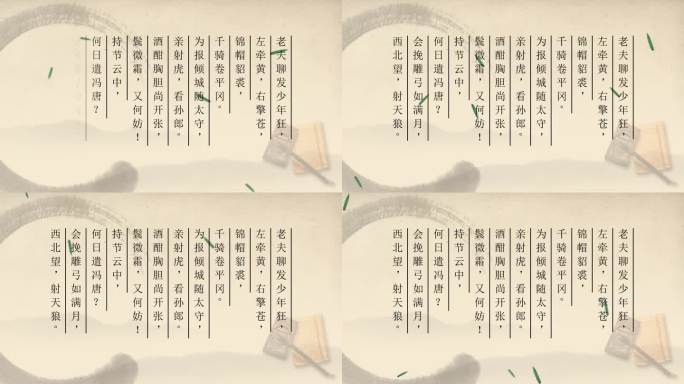 老夫聊发少年狂，
左牵黄，右擎苍，
锦帽貂裘，
千骑卷平冈。
为报倾城随太守，
亲射虎，看孙郎。
酒酣胸胆尚开张，
鬓微霜，又何妨！
持节云中，
何日遣冯唐？
老夫聊发少年狂，
左牵黄，右擎苍，
锦帽貂裘，
千骑卷平冈。
为报倾城随太守，
亲射虎，看孙郎。
酒酣胸胆尚开张，
鬓微霜，又何妨！
持节云中，
何日遣冯唐？
会挽雕弓如满月，
西北望，射天狼。
老夫聊发少年狂，
左牵黄，右擎苍，
锦帽貂裘，
千骑卷平冈。
为报倾城随太守，
亲射虎，看孙郎。
酒酣胸胆尚开张，
鬓微霜，又何妨！
持节云中，
何日遣冯唐？
会挽雕弓如满月，
西北望，射天狼。
老夫聊发少年狂，
左牵黄，右擎苍，
锦帽貂裘，
千骑卷平冈。
为报倾城随太守，
亲射虎，看孙郎。
酒酣胸胆尚开张，
鬓微霜，又何妨！
持节云中，
何日遣冯唐？
会挽雕弓如满月，
西北望，射天狼。